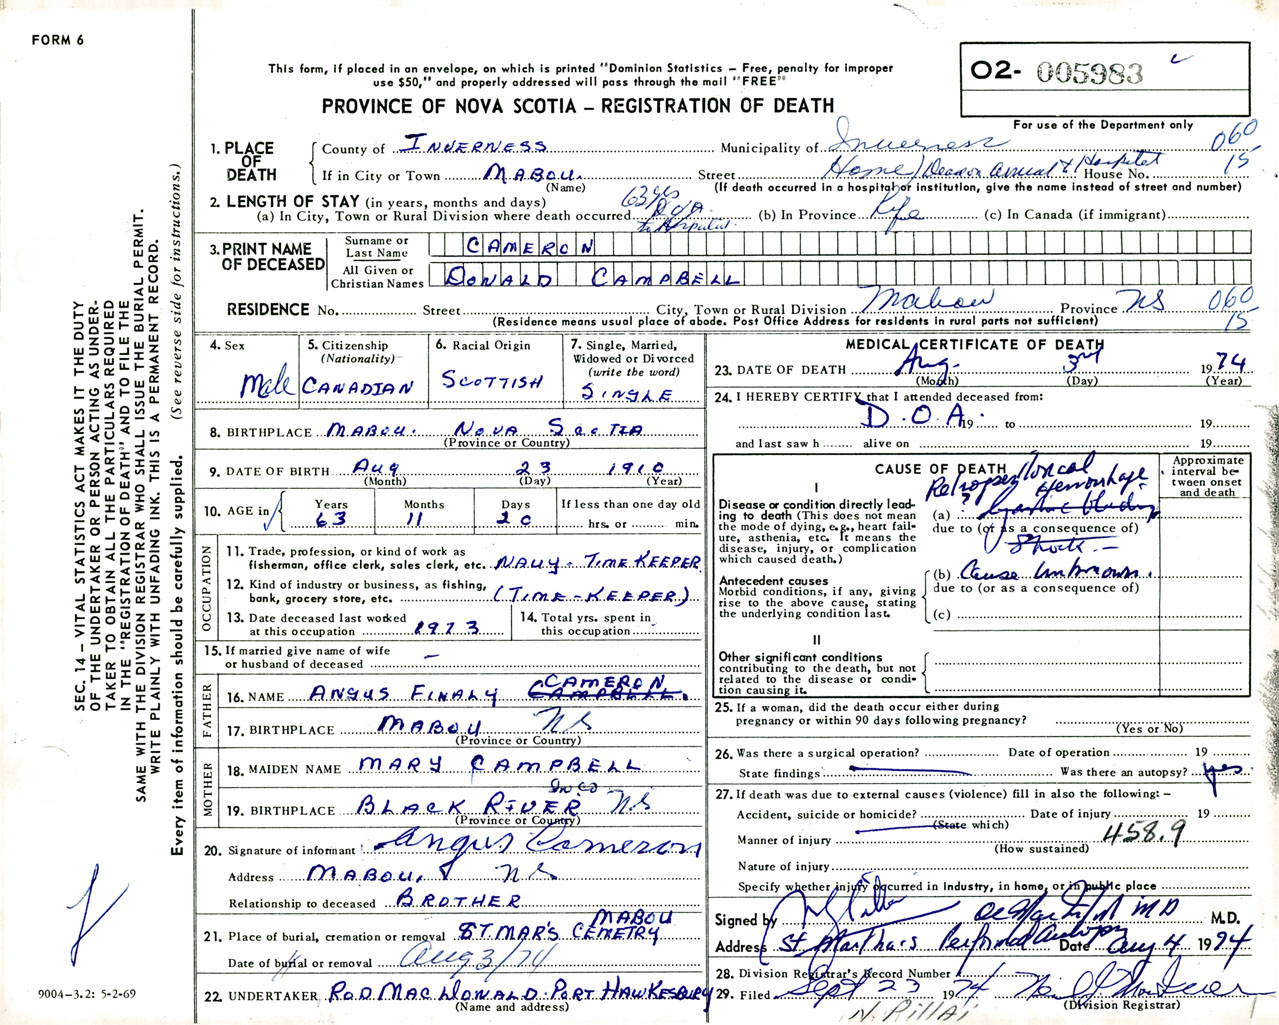 FORM 6
This form, if placed in an envelope, on which is printed "Dominion Statistics – Free, penalty for improper
use $50," and properly addressed will pass through the mail "FREE"
O2- 005983
PROVINCE OF NOVA SCOTIA – REGISTRATION OF DEATH
For use of the Department only
SEC. 14 – VITAL STATISTICS ACT MAKES IT THE DUTY
OF THE UNDERTAKER OR PERSON ACTING AS UNDER-
TAKER TO OBTAIN ALL THE PARTICULARS REQUIRED
IN THE "REGISTRATION OF DEATH" AND TO FILE THE
SAME WITH THE DIVISION REGISTRAR WHO SHALL ISSUE THE BURIAL PERMIT.
WRITE PLAINLY WITH UNFADING INK. THIS IS A PERMANENT RECORD.
Every item of information should be carefully supplied. (See reverse side for instructions.)
1. PLACE OF DEATH
County of INVERNESS Municipality of Inverness 060
If in City or Town MABOU. Street Home / Dead on arrival at Hospital House No. 15
(Name) (If death occurred in a hospital or institution, give the name instead of street and number)
2. LENGTH OF STAY (in years, months and days) 63 yrs
(a) In City, Town or Rural Division where death occurred D.O.A. (b) In Province Life (c) In Canada (if immigrant)
to Hospital.
3. PRINT NAME OF DECEASED
Surname or Last Name CAMERON
All Given or Christian Names DONALD CAMPBELL
RESIDENCE No. Street City, Town or Rural Division Mabou Province NS 060
(Residence means usual place of abode. Post Office Address for residents in rural parts not sufficient) 15
4. Sex Male
5. Citizenship (Nationality) CANADIAN
6. Racial Origin SCOTTISH
7. Single, Married, Widowed or Divorced (write the word) SINGLE
8. BIRTHPLACE MABOU. NOVA SCOTIA
(Province or Country)
9. DATE OF BIRTH Aug 23 1910
(Month) (Day) (Year)
10. AGE in Years 63 Months 11 Days 20 If less than one day old hrs. or min.
OCCUPATION
11. Trade, profession, or kind of work as
fisherman, office clerk, sales clerk, etc. NAVY - TIME KEEPER
12. Kind of industry or business, as fishing,
bank, grocery store, etc. (TIME-KEEPER)
13. Date deceased last worked
at this occupation 1973
14. Total yrs. spent in
this occupation
15. If married give name of wife
or husband of deceased –
FATHER
16. NAME ANGUS FINALY CAMPBELL. CAMERON
17. BIRTHPLACE MABOU NS
(Province or Country)
MOTHER
18. MAIDEN NAME MARY CAMPBELL
19. BIRTHPLACE BLACK RIVER Inv CO NS
(Province or Country)
20. Signature of informant Angus Cameron
Address MABOU, NS
Relationship to deceased BROTHER
21. Place of burial, cremation or removal ST. MAR'S CEMETRY MABOU
Date of burial or removal Aug 3/74
22. UNDERTAKER ROD MACDONALD PORT HAWKESBURY
(Name and address)
MEDICAL CERTIFICATE OF DEATH
23. DATE OF DEATH Aug. 3rd 1974
(Month) (Day) (Year)
24. I HEREBY CERTIFY that I attended deceased from:
D.O.A. 19 to 19
and last saw h alive on 19
CAUSE OF DEATH
Approximate interval between onset and death
I
Disease or condition directly lead-
ing to death (This does not mean
the mode of dying, e.g., heart fail-
ure, asthenia, etc. It means the
disease, injury, or complication
which caused death.)
Retroperitoneal Hemorrhage
(a) ? Gastric bleeding
due to (or as a consequence of)
Shock. –
Antecedent causes
Morbid conditions, if any, giving
rise to the above cause, stating
the underlying condition last.
(b) Cause unknown.
due to (or as a consequence of)
(c)
II
Other significant conditions
contributing to the death, but not
related to the disease or condi-
tion causing it.
25. If a woman, did the death occur either during
pregnancy or within 90 days following pregnancy?
(Yes or No)
26. Was there a surgical operation? Date of operation 19
State findings Was there an autopsy? yes
27. If death was due to external causes (violence) fill in also the following: –
Accident, suicide or homicide? Date of injury 19
(State which)
Manner of injury 458.9
(How sustained)
Nature of injury
Specify whether injury occurred in Industry, in home, or in public place
Signed by MD M.D.
Address St Martha's Performed autopsy Date Aug 4 1974
28. Division Registrar's Record Number
29. Filed Sept 23 1974
(Division Registrar)
N. Pillai
9004-3.2: 5-2-69